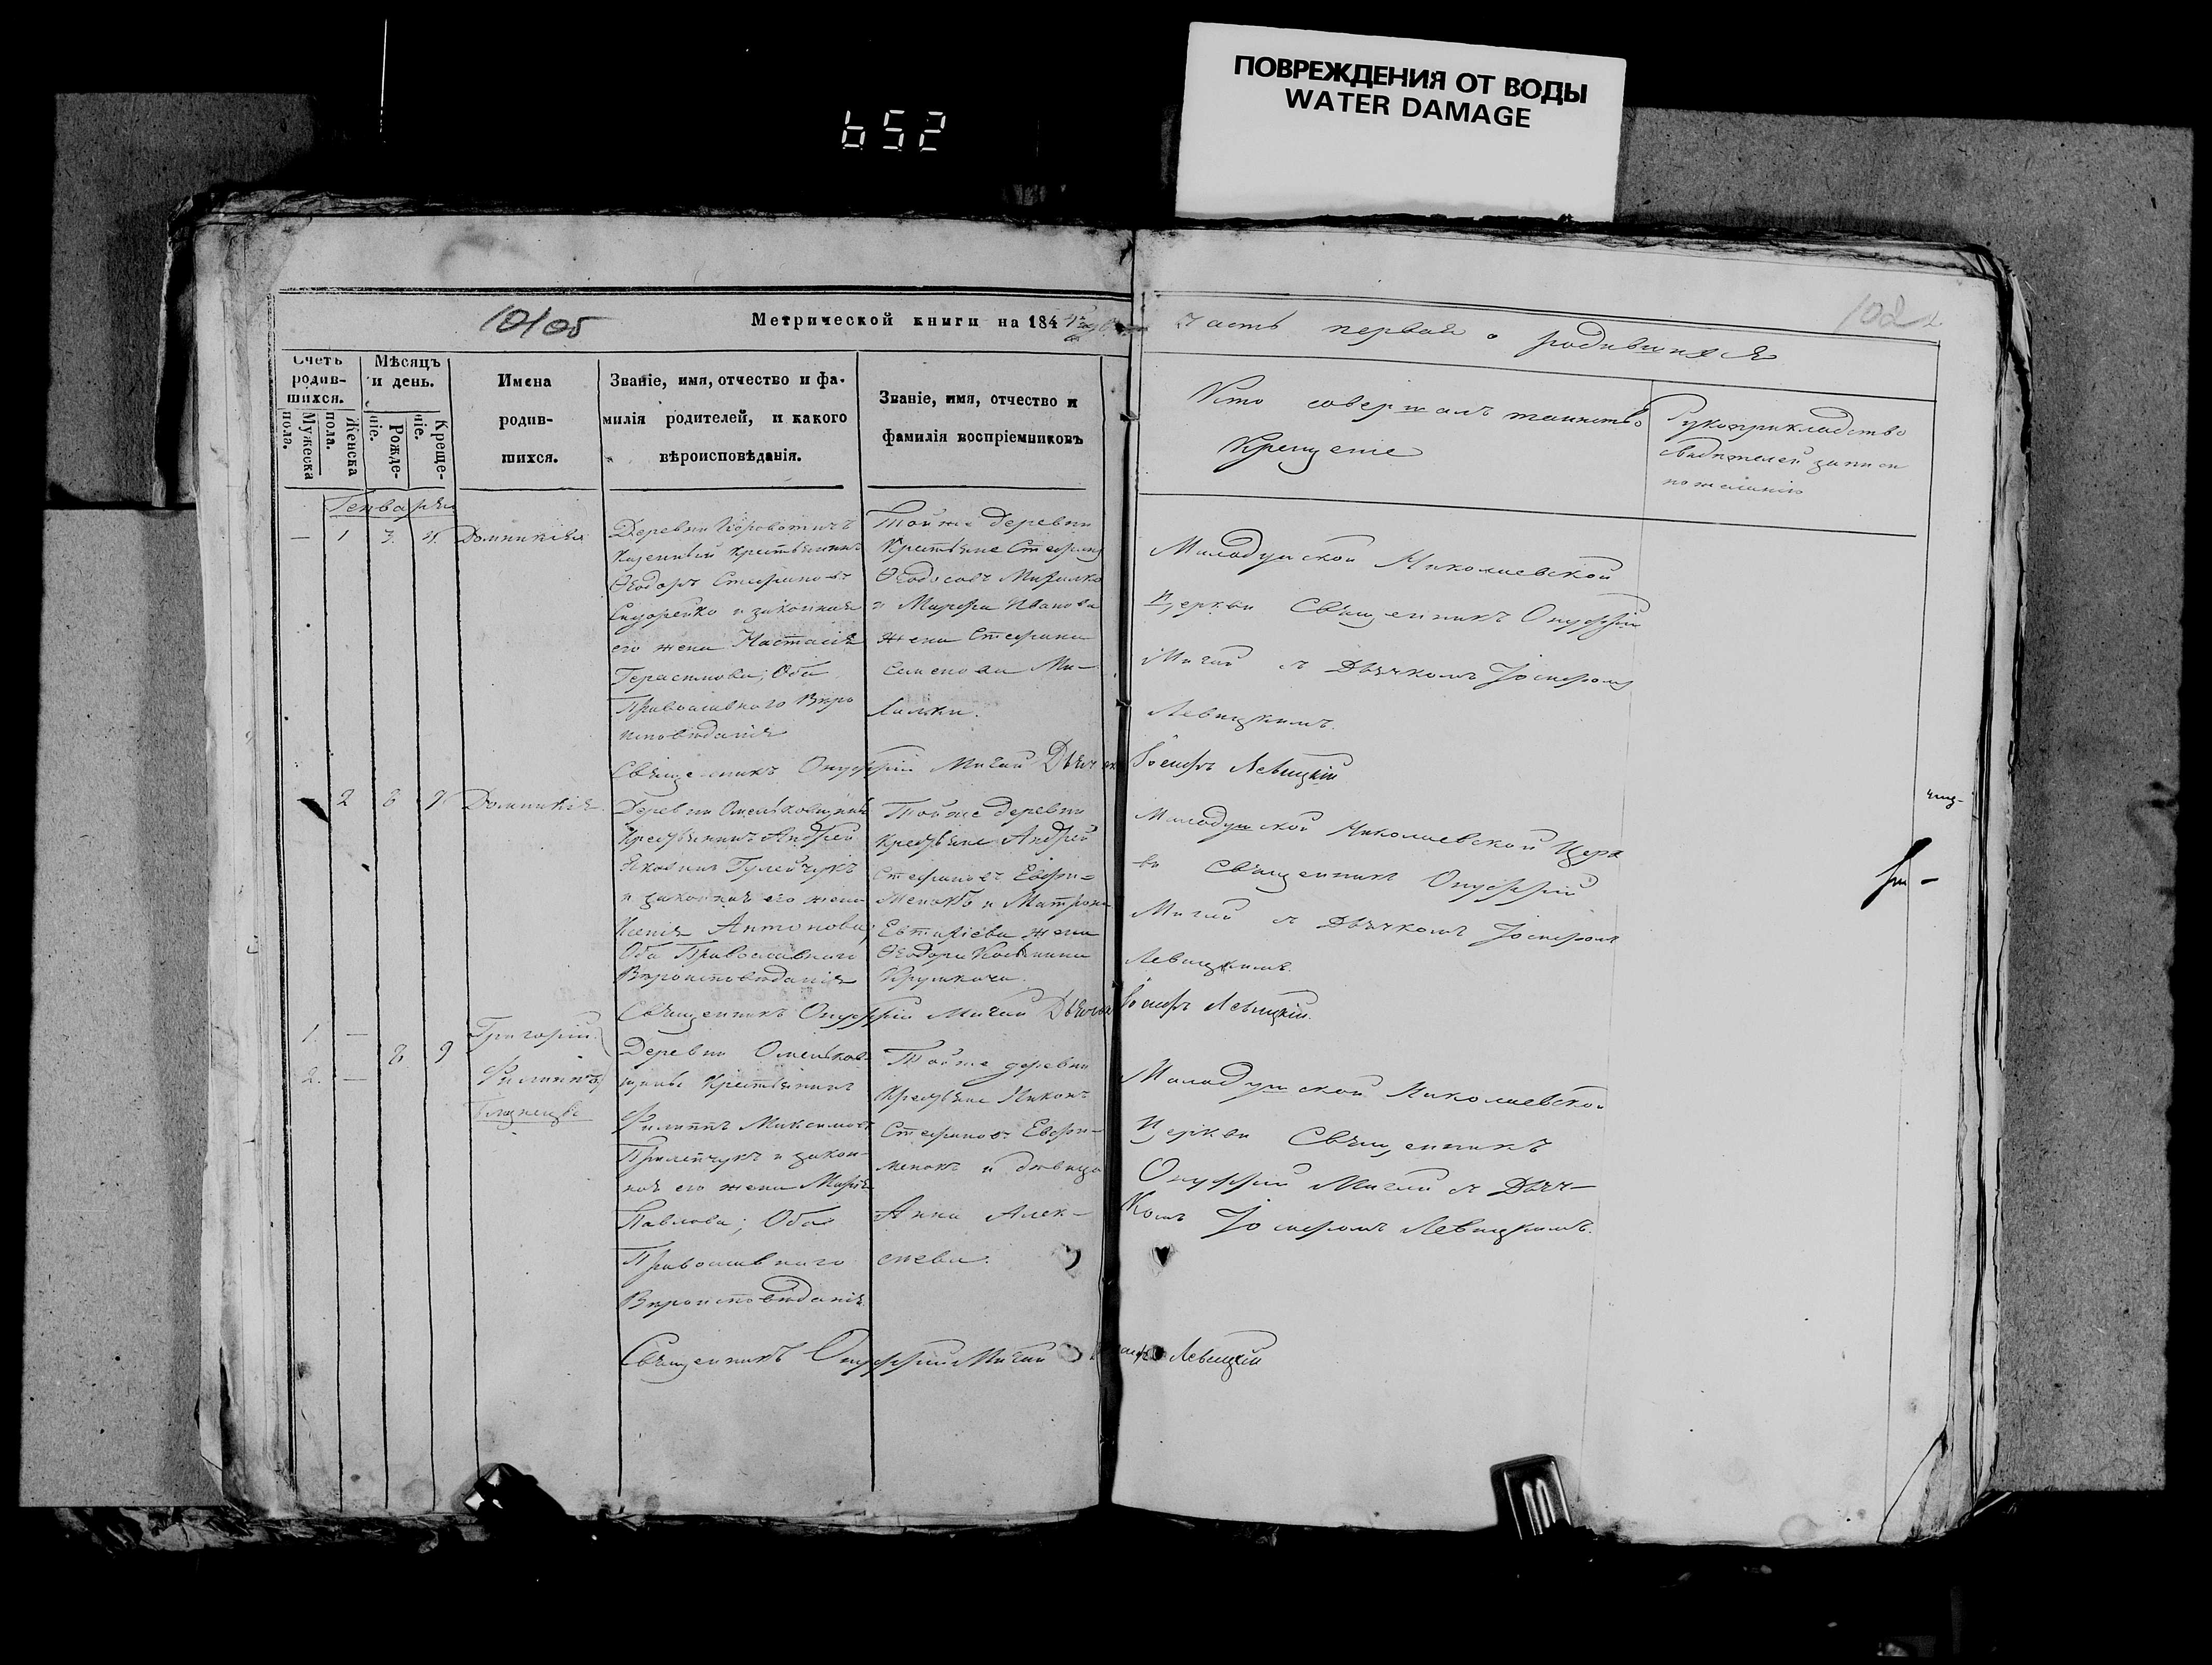 652
ПОВРЕЖДЕНИЯ ОТ ВОДЫ
WATER DAMAGE
Метрической книги на 184
часть первая о родившихся
102
Счетъ родив- шихся.
Мѣсяцъ и день.
Имена
родив-
шихся.
Званіе, имя, отчество и фа-
милія родителей, и какого
вѣроисповѣданія.
Званіе, имя, отчество и
фамилія воспріемниковъ
Мужеска пола.
Женска пола.
Рожде- ніе.
Креще- ніе.
Кто совершалъ таинство
Крещеніе
Рукоприкладство
свидѣтелей записи
по желанію
Генварья
— 1 3. 4. Доминикія
Деревни
Казенный крестьянинъ
Ѳеодоръ Стефановъ
Сидорейко и законная
его жена Настасія
Герасимова; Оба
Православнаго Вѣро
исповѣданія
Тойже деревни
Крестьяне Стефанъ
Ѳеодосовъ Михалко
и Марфа Иванова
жена Стефана
Семенова Ми-
халки.
Малодушской Николаевской
Церкви Священникъ Онуфрій
Мигай съ Дьячкомъ Іосифомъ
Левицкимъ.
Священникъ Онуфрій Мигай Дьячекъ Іосифъ Левицкій
2 8 9 Доминикія
Деревни Омельковщины
Крестьянинъ Андрей
Яковинъ Гулейчукъ
и законная его жена
Ксенія Антонова;
Оба Православнаго
Вѣроисповѣданія
Тойже деревни
Крестьяне Андрей
Стефановъ Евфи-
менокъ и Матрона
Евтихіева жена
Ѳеодора
Малодушской Николаевской Церк
ви Священникъ Онуфрій
Мигай съ Дьячкомъ Іосифомъ
Левицкимъ.
Священникъ Онуфрій Мигай Дьячекъ Іосифъ Левицкій.
1. — Григорій
8 9
2. — Филиппъ
Близнецы
Деревни Омельков-
щины Крестьянинъ
Филиппъ Максимовъ
и закон-
ная его жена Марія
Павлова; Оба
Православнаго
Вѣроисповѣданія
Тойже деревни
Крестьяне Никонъ
Стефановъ Евфи-
менокъ и дѣвица
Анна Алек-
сѣева.
Малодушской Николаевской
Церкви Священникъ
Онуфрій Мигай съ Дьяч-
комъ Іосифомъ Левицкимъ.
Священникъ Онуфрій Мигай Левицкій